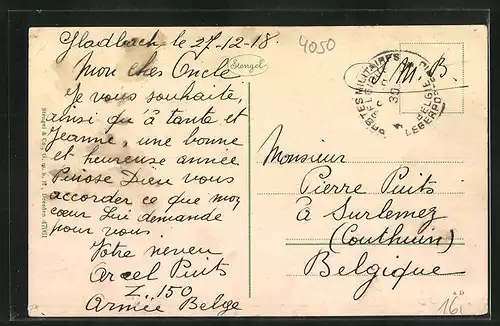 Gladbach, le 27-12-18.
Mon cher Oncle
Je vous souhaite,
ainsi qu'à tante et
Jeanne, une bonne
et heureuse année
Puisse Dieu vous
accorder ce que mon
cœur Lui demande
pour vous.
Votre neveu
Arcel Puits
Z..150
Armée Belge
Stengel
4050
S. M. B.
POSTES MILITAIRES
BELGIQUE
4
30
LEGERPOSTERIJ
BELGIE
Monsieur
Pierre Puits
à Surlemez
(Couthuin)
Belgique
Stengel & Co., G. m. b. H., Dresden
16.